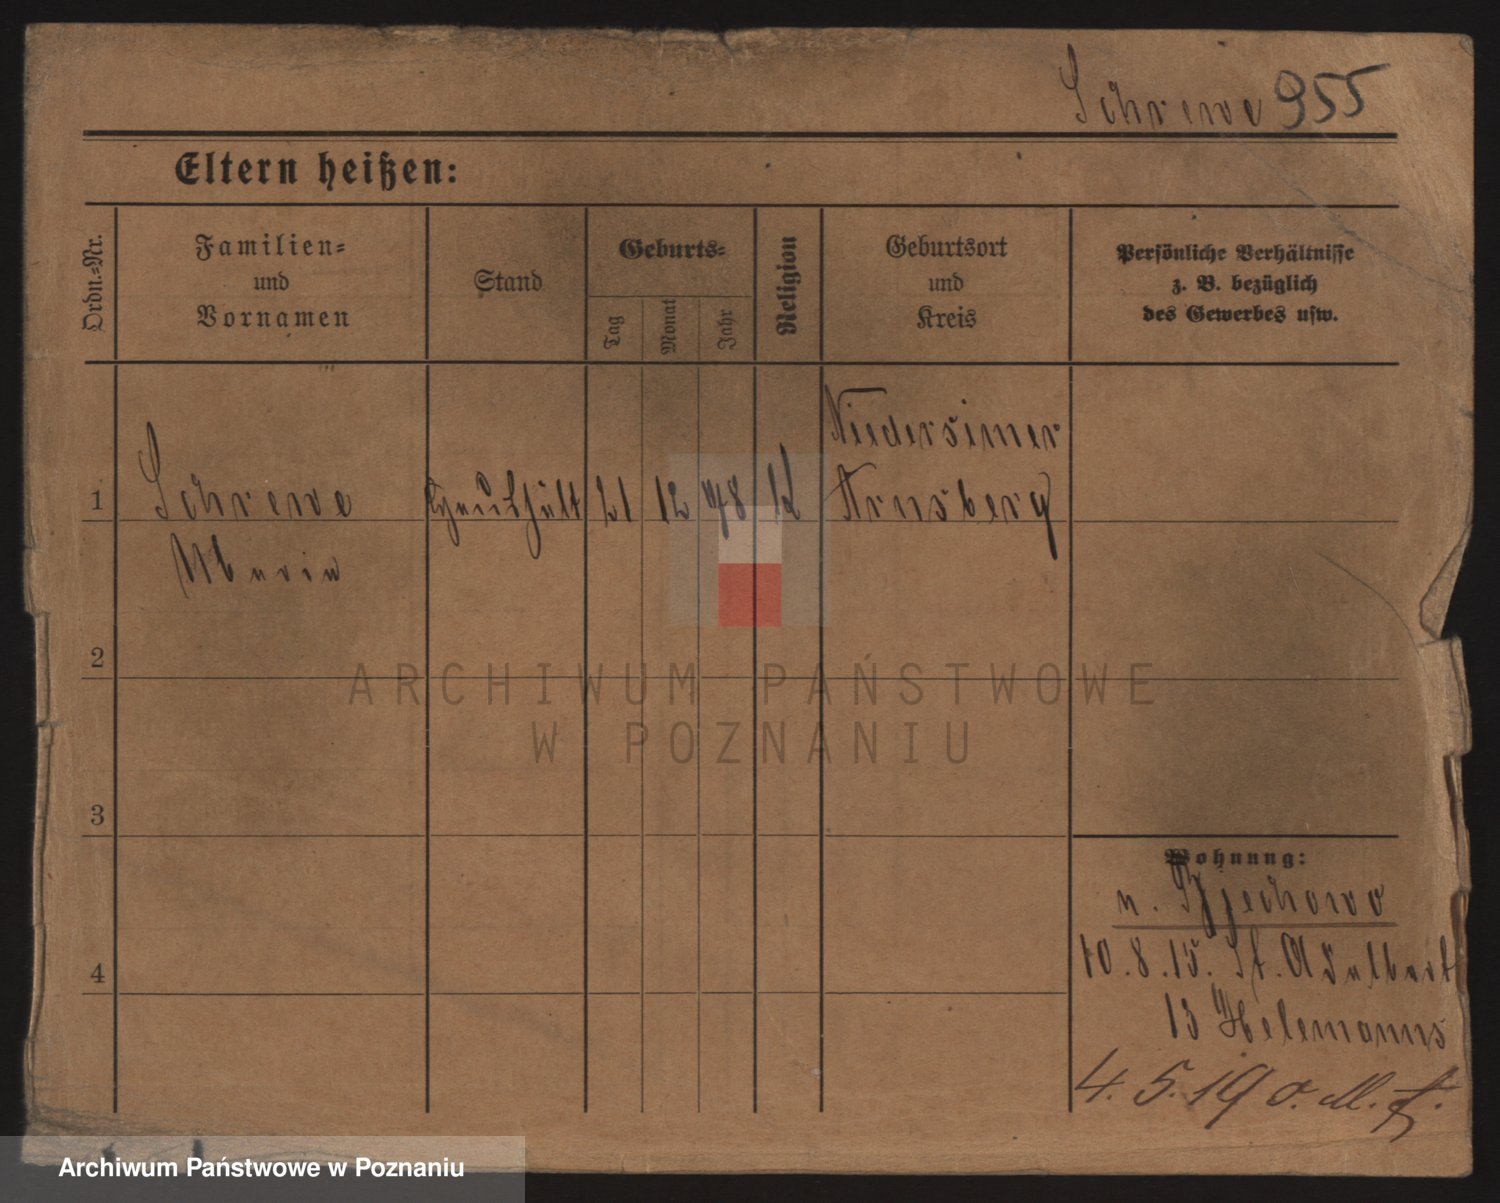 Schrewe 955
Eltern heißen:
Ordn.=Nr.
Familien=
und
Vornamen
Stand
Geburts=
Tag
Monat
Jahr
Religion
Geburtsort
und
Kreis
Persönliche Verhältnisse
z. B. bezüglich
des Gewerbes usw.
1
Schrewe
Maria
21 12 78 k
Niedersimer
Arnsberg
2
3
4
Wohnung:
10.8.15. St. Adalbert
13
4.5.19 o. M. f.
ARCHIWUM PAŃSTWOWE
W POZNANIU
Archiwum Państwowe w Poznaniu